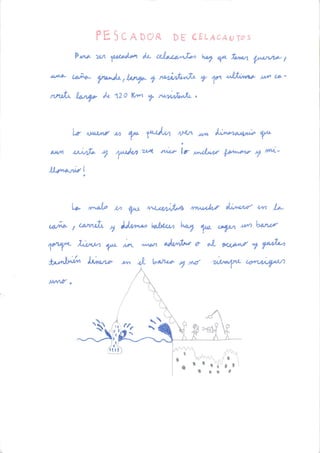 PESCADOR DE CELACANTOS
Para ser pescador de celacantos hay que tener fuerza,
una caña grande, larga y resistente y por ultimo un ca-
rrete largo de 120 Km y resistente.
Lo bueno es que puedes ver un dinosaurio que
aun exista y puedes ser rico lo incluso famoso y mi-
llonario!
Lo malo es que necesitas mucho dinero en la
caña, carrete y ademas habeces hay que coger un barco
porque tienes que ir mar adentro o al oceano y gastas
también dinero en el barco y no siempre consigues
uno.